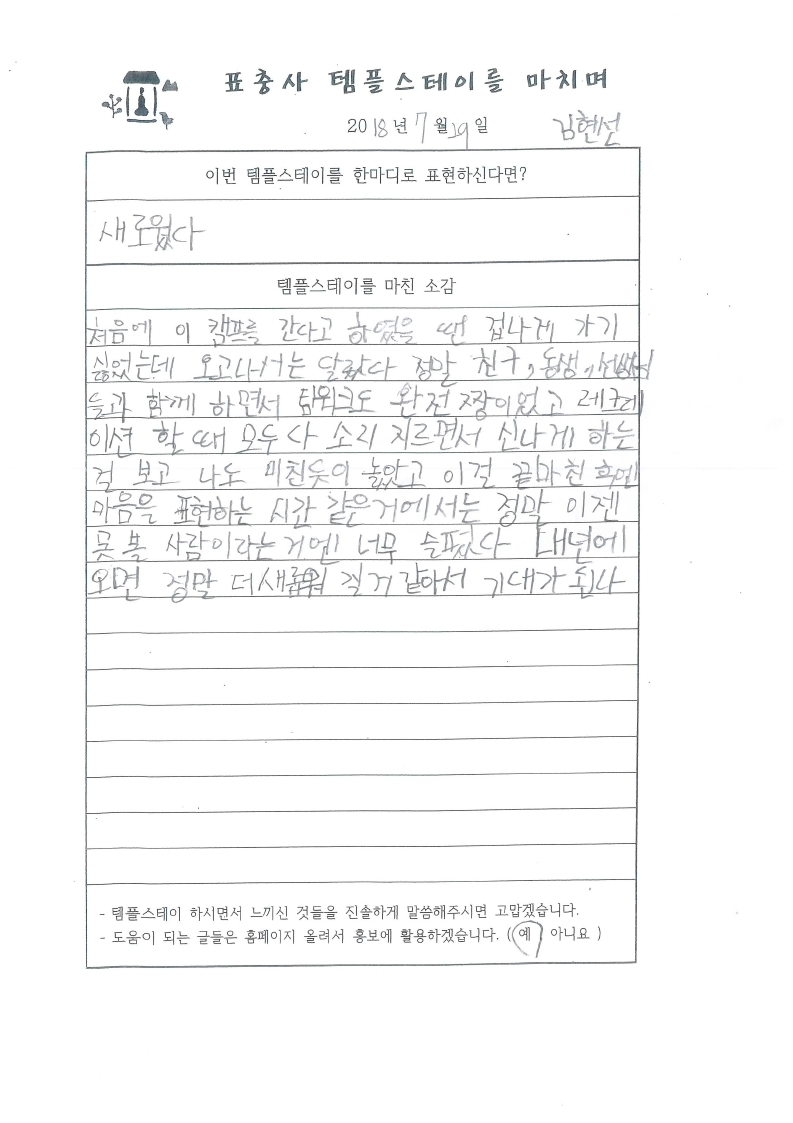 표충사 템플스테이를 마치며
2018년 7월 29일 김현선
이번 템플스테이를 한마디로 표현하신다면?
새로웠다
템플스테이를 마친 소감
처음에 이 캠프를 간다고 하였을 땐 겁나게 가기
싫었는데 오고나서는 달랐다 정말 친구, 동생, 선생님
들과 함께 하면서 팀워크도 완전 짱이었고 레크레
이션 할 때 모두 다 소리 지르면서 신나게 하는
걸 보고 나도 미친듯이 놀았고 이걸 끝마친 후엔
마음을 표현하는 시간 같은거에서는 정말 이젠
못 볼 사람이라는거엔 너무 슬펐다 내년에
오면 정말 더 새로워 질거 같아서 기대가 된다
- 템플스테이 하시면서 느끼신 것들을 진솔하게 말씀해주시면 고맙겠습니다.
- 도움이 되는 글들은 홈페이지 올려서 홍보에 활용하겠습니다. ( 예 아니요 )